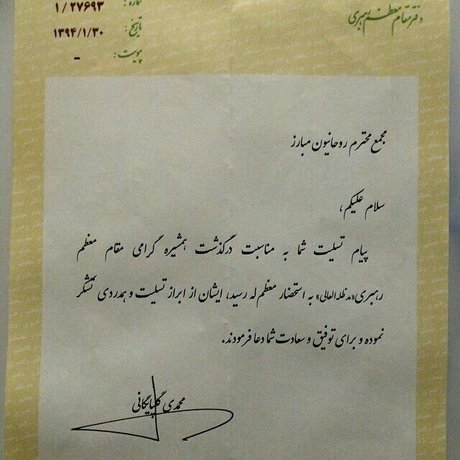 دفتر مقام معظم رهبری
شماره: ۱/۲۷۶۹۳
تاریخ: ۱۳۹۴/۱/۳۰
پیوست: -
مجمع محترم روحانیون مبارز
سلام علیکم،
پیام تسلیت شما به مناسبت درگذشت همشیره گرامی مقام معظم
رهبری «مدظله العالی» به استحضار معظم له رسید، ایشان از ابراز تسلیت و همدردی تشکر
نموده و برای توفیق و سعادت شما دعا فرمودند.
محمدی گلپایگانی